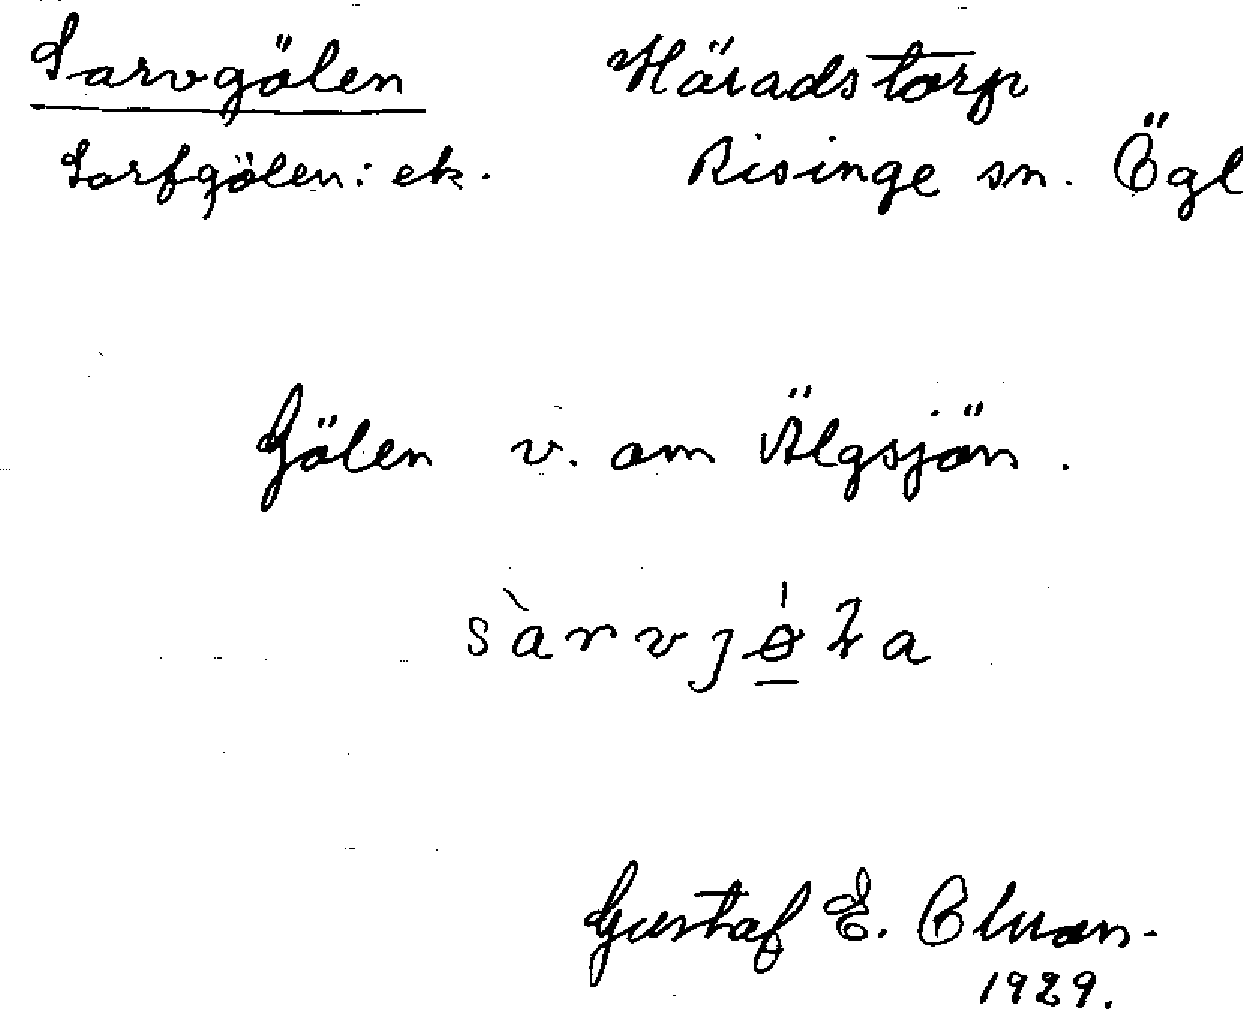 Sarvgölen Häradstorp
Sarfgölen: ek. Risinge sn. Ögl
Gölen v. om Älgsjön.
sàrvjǿ̲ła
Gustaf E.
1929.